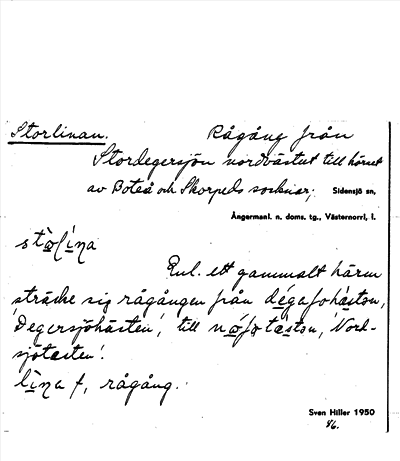 Storlinan. Rågång från
Stordegersjön nordvästut till hörnet
av Boteå och Skorpeds socknar; Sidensjö sn,
Ångermanl. n. doms. tg., Västernorrl, l.
Enl. ett gammalt
sträcke sig rågången från
'Degersjöhästen', till 'Nord-
sjötasten'.
lìna f, rågång.
Sven Hiller 1950